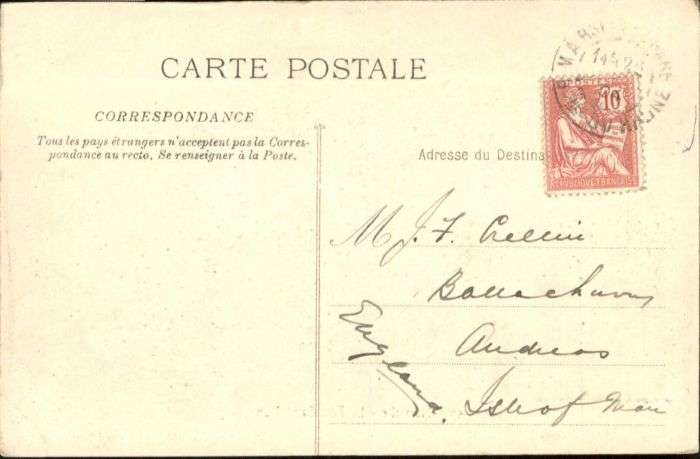 CARTE POSTALE
CORRESPONDANCE
Tous les pays étrangers n'acceptent pas la Corres-
pondance au recto. Se renseigner à la Poste.
Adresse du Destina
10
RÉPUBLIQUE FRANÇAISE
RHONE
M J. F. Crellin
Andreas
Isle of Man
England